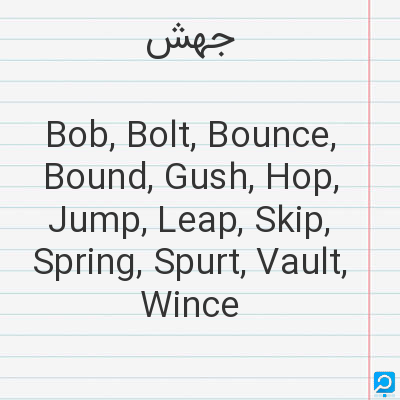 جهش
Bob, Bolt, Bounce,
Bound, Gush, Hop,
Jump, Leap, Skip,
Spring, Spurt, Vault,
Wince